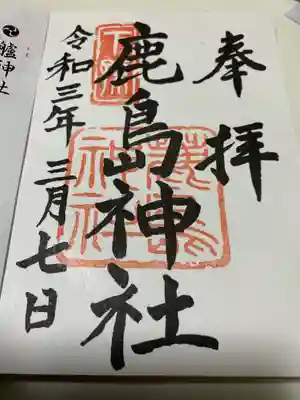 奉拝
鹿島神社
令和三年三月七日
艫神社